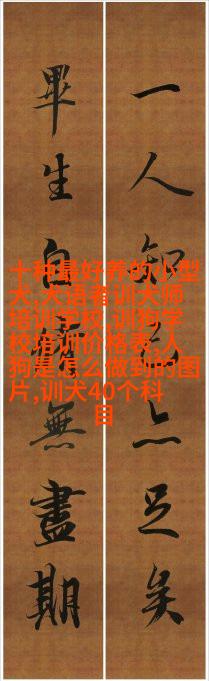 一人知己亦足矣
畢生自無盡期
十种最好养的小型
犬,犬语者训犬师
培训学校,训狗学
校培训价格表,人
狗是怎么做到的图
片,训犬40个科
目